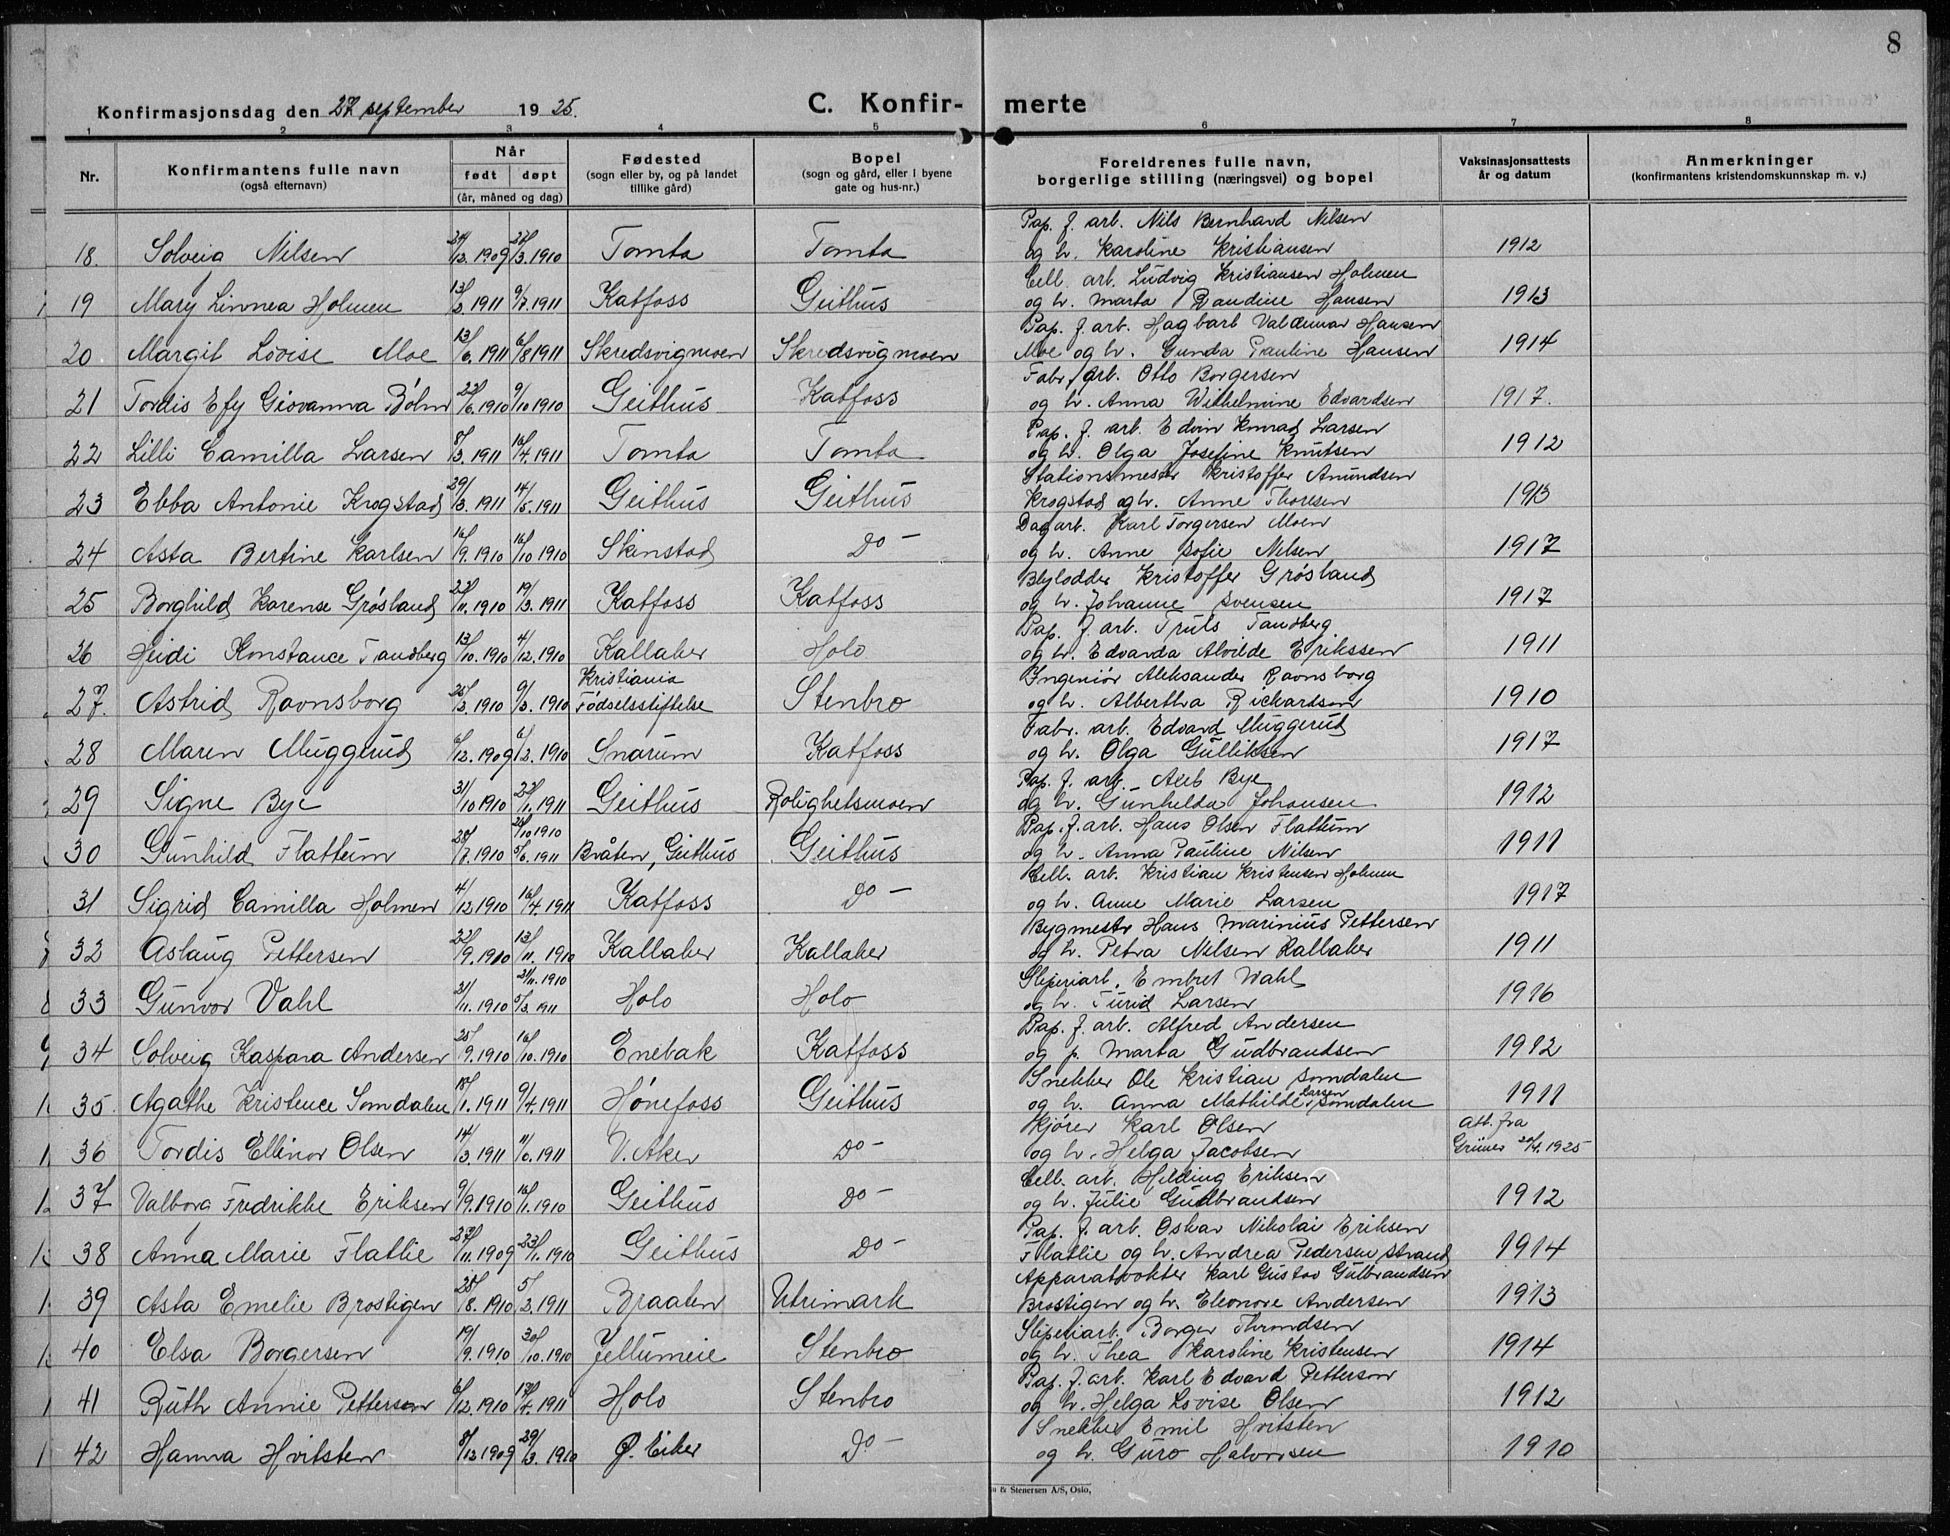 8
Konfirmasjonsdag den 27 september 1925.
C. Konfirmerte
1 2 3 4 5 6 7 8
Nr. Konfirmantens fulle navn (også efternavn) Når født døpt (år, måned og dag) Fødested (sogn eller by, og på landet tillike gård) Bopel (sogn og gård, eller i byene gate og hus-nr.) Foreldrenes fulle navn, borgerlige stilling (næringsvei) og bopel Vaksinasjonsattests år og datum Anmerkninger (konfirmantens kristendomskunnskap m. v.)
18. Solveig Nilsen 1909 27/3. 1910 Tomta Tomta Pap. f. arb. Nils Bernhard Nilsen
og h. Karoline Kristiansen 1912
19 Mary Linnea Holmen 1911 9/7. 1911 Katfoss Geithus Cell. arb. Ludvig Kristiansen Holmen
og h. Marta Randine Hansen 1913
20 Margit Lovise Moe 13/6. 1911 6/8 1911 Skredsvigmoen Skredsvigmoen Pap. f. arb. Hagbart Valdemar Hansen
Moe og h. Gunda Pauline Hansen 1914
21 Tordis Efy Giovanna Böhm 22/6. 1910 9/10 1910 Geithus Katfoss Fabr. arb. Otto Borgersen
og h. Anna Wilhelmine Edvardsen 1917.
22 Lilli Camilla Larsen 8/3. 1911 16/4. 1911 Tomta Tomta Pap. f. arb. Edvin Konrad Larsen
og h. Olga Josefine Knutsen 1912
23 Ebba Antonie Krogstad 29/3. 1911 14/5. 1911 Geithus Geithus Stationsmester Kristoffer Amundsen
Krogstad og h. Anne Thoresen 1913
24 Asta Bertine Karlsen 16/9. 1910 16/10 1910 Skinstad Do - Dagarb. Karl Torgersen Moen
og h. Anne Sofie Nilsen 1917
25 Borghild Karense Grøsland 22/11. 1910 19/3. 1911 Katfoss Katfoss Blylodder Kristoffer Grøsland
og h. Johanne Svensen 1917
26 Heidi Konstance Tandberg 13/10. 1910 4/12. 1910 Kallaber Holo Pap. f. arb. Truls Tandberg
og h. Edvarda Alvilde Erikssen 1911
27. Astrid Ravnsborg 1910 9/3. 1910 Kristiania Fødselsstiftelse Stenbro Ingeniør Aleksander Ravnsborg
og h. Albertha Rickardson 1910
28 Maren Muggerud 6/12. 1909 6/2. 1910 Snarum Katfoss Fabr. arb. Edvard Muggerud
og h. Olga Gulliksen 1917
29 Signe Bye 31/10 1910 22/1. 1911 Geithus Rolighetsmoen Pap. f. arb. Axel Bye
og h. Gunhilda Johansen 1912
30 Gunhild Flattum 28/7. 1910 1910 5/6. 1911 Bråten, Geithus Geithus Pap. f. arb. Hans Olsen Flattum
og h. Anna Pauline Nilsen 1911
31 Sigrid Camilla Holmen 4/12 1910 16/4. 1911 Katfoss Do - Cell. arb. Kristian Kristensen Holmen
og h. Anne Marie Larsen 1917
32 Aslaug Pettersen 22/9. 1910 13/11. 1910 Kallaber Kallaber Bygmestr Hans Marinius Pettersen
og h. Petra Nilsen Kallaber 1911
33 Gunvor Vahl 1910 21/11. 1910 5/3. 1911 Holo Holo Sliperiarb. Embret Wahl
og h. Turid Larsen 1916
34 Solveig Kaspara Andersen 25/9. 1910 16/10. 1910 Enebak Katfoss Pap. f. arb. Alfred Andersen
og p. Marta Gudbrandsen 1912
35. Agathe Kristence Somdalen 1911 9/4. 1911 Hønefoss Geithus Snekker Ole Kristian Somdalen
og h. Anna Mathilde Larsen Somdalen 1911
36 Tordis Ellinor Olsen 14/3. 1911 11/6. 1911 V. Aker Do - Kjører Karl Olsen
og h. Helga Jacobsen Att. fra Grüner 1925
37 Valborg Fredrikke Eriksen 9/9. 1910 16/1. 1910 Geithus Do - Cell. arb. Hilding Eriksen
og h. Julie Gudbrandsen 1912
38 Anna Marie Flatlie 27/11. 1909 23/1. 1910 Geithus Do - Pap. f. arb. Oskar Nikolai Eriksen
Flatlie og h. Andrea Pedersen Strand 1914
39 Asta Emelie Brostigen 28/8. 1910 5/2. 1911 Braaten Utrimark Apparatvokter Karl Gustav Gulbrandsen
Brostigen og h. Eleonore Andersen 1913
40 Elsa Borgersen 19/9. 1910 30/10. 1910 Jellumeie Stenbro Sliperiarb. Borger Throndsen
og h. Thea Karoline Kristensen 1914
41 Ruth Annie Pettersen 6/12. 1910 17/4. 1911 Holo Stenbro Pap. f. arb. Karl Edvard Pettersen
og h. Helga Lovise Olsen 1912
42 Hanna Hvitsten 8/12 1909 29/3. 1910 Ø. Eiker Do - Snekker Emil Hvitsten
og h. Guro Halvorsen 1910
& Stenersen A/S, Oslo,